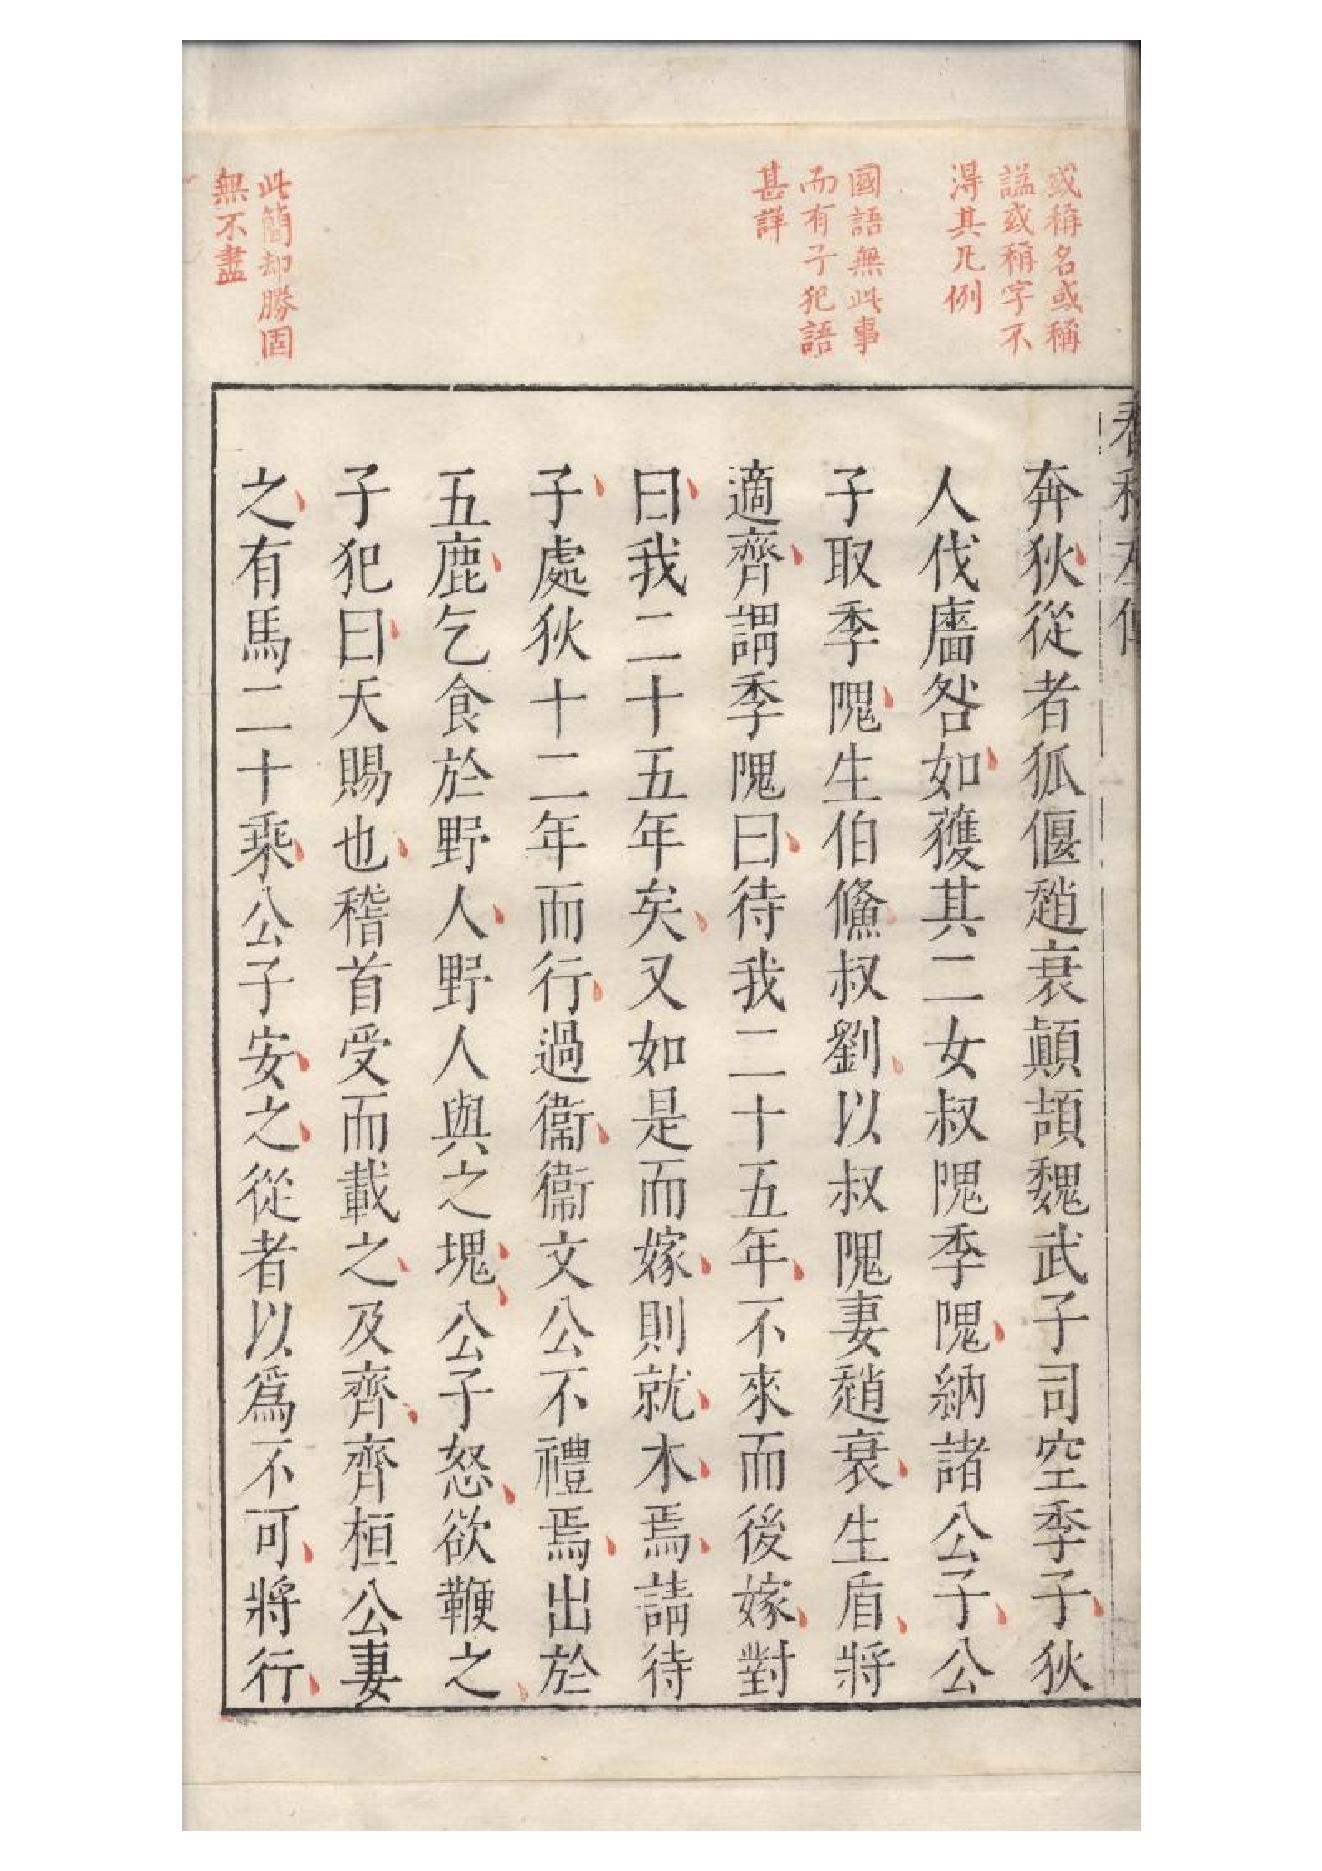 或稱名或稱
謚或稱字不
淂其凡例
國語無此事
而有子犯語
甚詳
此簡却勝固
無不盡
春秋左傳
奔狄從者狐偃趙衰顛頡魏武子司空季子狄
人伐廧咎如獲其二女叔隗季隗納諸公子公
子取季隗生伯鯈叔劉以叔隗妻趙衰生盾將
適齊謂季隗曰待我二十五年不來而後嫁對
曰我二十五年矣又如是而嫁則就木焉請待
子處狄十二年而行過衞衞文公不禮焉出於
五鹿乞食於野人野人與之塊公子怒欲鞭之
子犯曰天賜也稽首受而載之及齊齊桓公妻
之有馬二十乘公子安之從者以爲不可將行